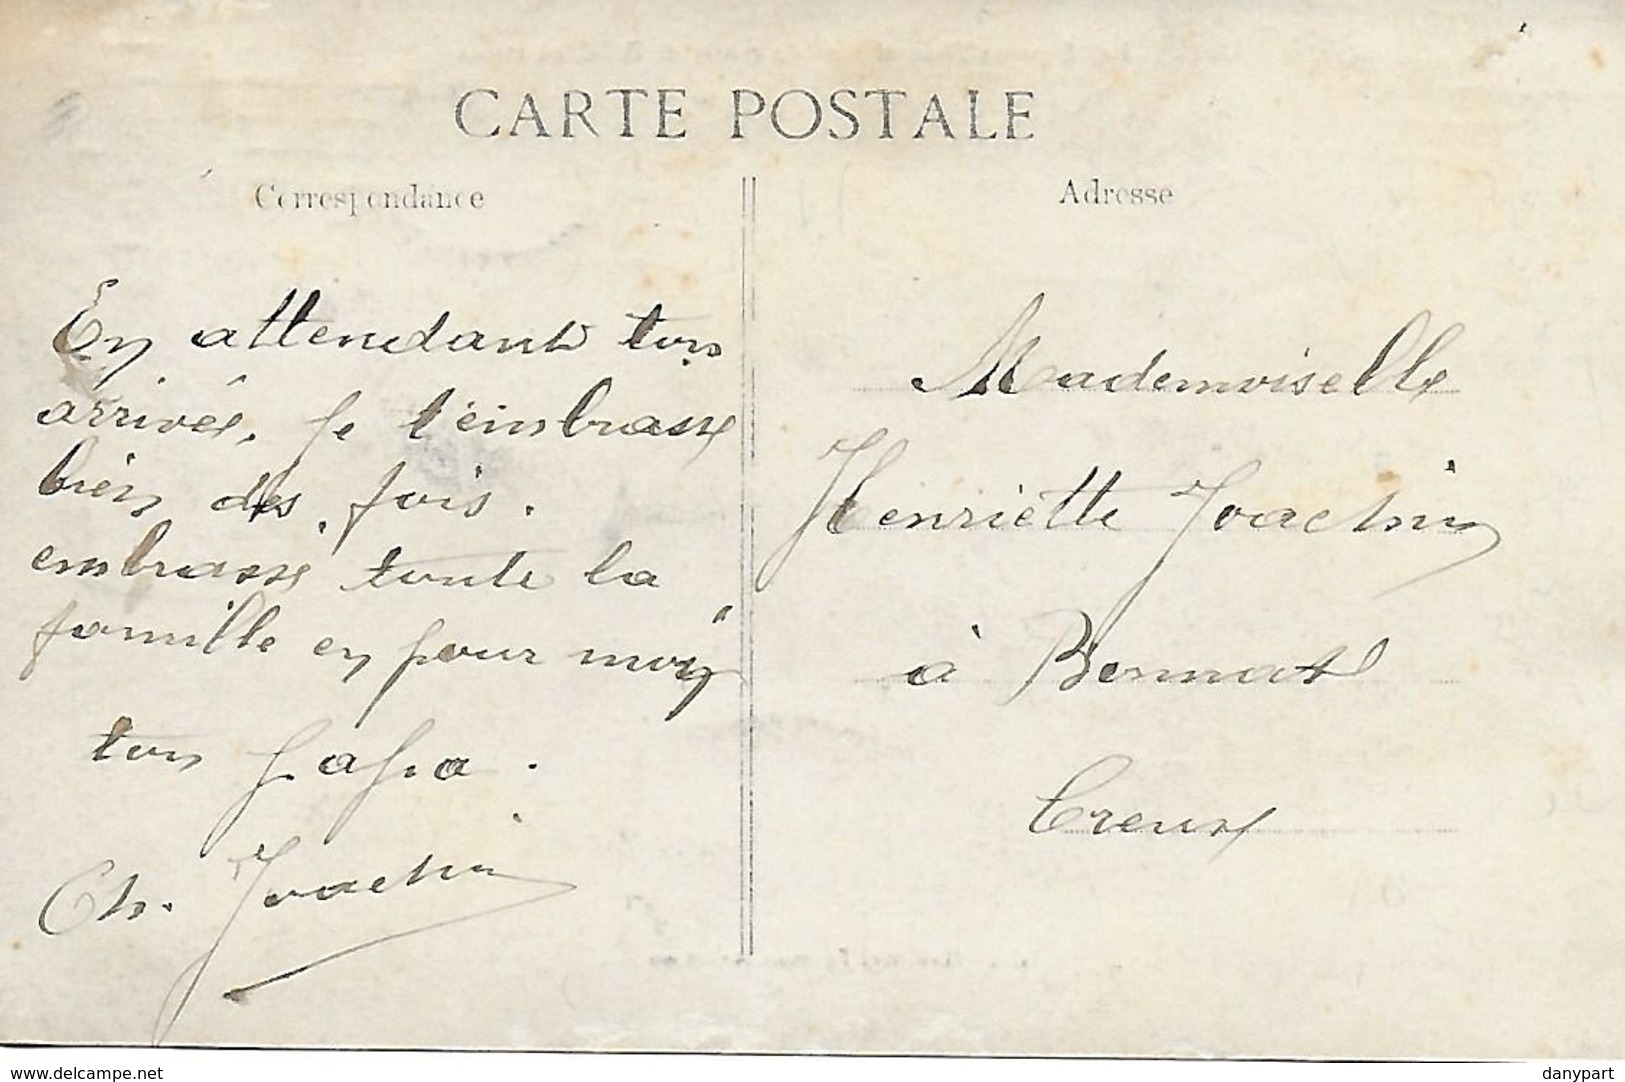 CARTE POSTALE
Correspondance
En attendant ton
arrivée, je t'embrasse
bien des fois.
embrasse toute la
famille en pour moy
ton papa.
Ch. Joachin
Adresse
Mademoiselle
Henriette Joachin
à Bonnat
Creuse
delcampe.net
danypart